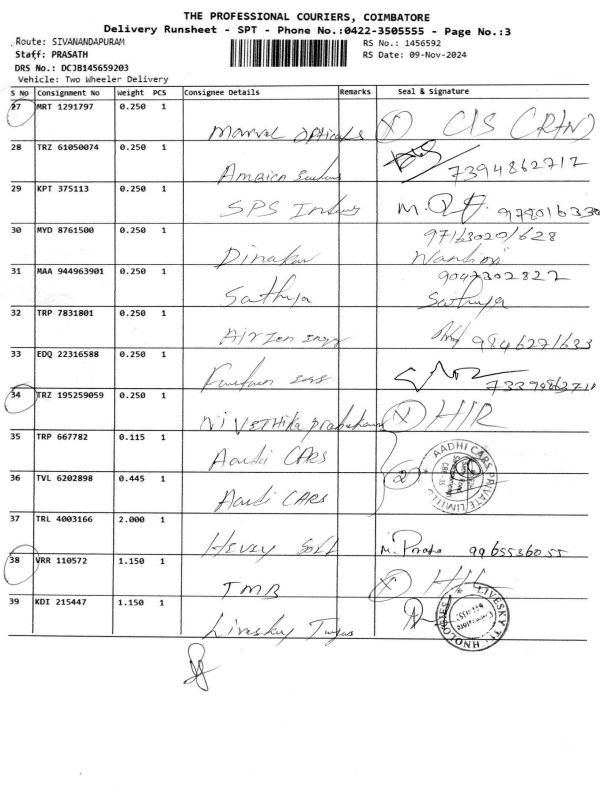 THE PROFESSIONAL COURIERS, COIMBATORE
Delivery Runsheet - SPT - Phone No.:0422-3505555 - Page No.:3
Route: SIVANANDAPURAM
RS No.: 1456592
Staff: PRASATH
RS Date: 09-Nov-2024
DRS No.: DCJB145659203
Vehicle: Two Wheeler Delivery
S No Consignment No Weight PCS Consignee Details Remarks Seal & Signature
27 MRT 1291797 0.250 1
Opticals X CIS
28 TRZ 61050074 0.250 1
7394862712
29 KPT 375113 0.250 1
SPS M.
30 MYD 8761500 0.250 1
97163020/628
Dinakar
31 MAA 944963901 0.250 1
9047302822
Sathya Sathya
32 TRP 7831801 0.250 1
9846271633
33 EDQ 22316588 0.250 1
34 TRZ 195259059 0.250 1
35 TRP 667782 0.115 1
Aardi CARS
2
AADHI CARS PRIVATE LIMITED
36 TVL 6202898 0.445 1
Aardi CARS
37 TRL 4003166 2.000 1
9965536055
38 VRR 110572 1.150 1
TMB X
39 KDI 215447 1.150 1
Livesky
LIVESKY